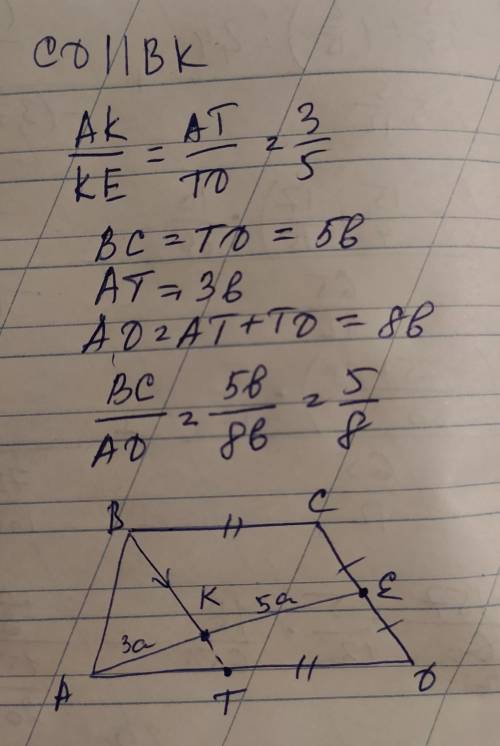 CD||BK
AK/KE = AT/TD = 3/5
BC = TD = 5b
AT = 3b
AD = AT + TD = 8b
BC/AD = 5b/8b = 5/8
B C
K 5a E
3a
A T D